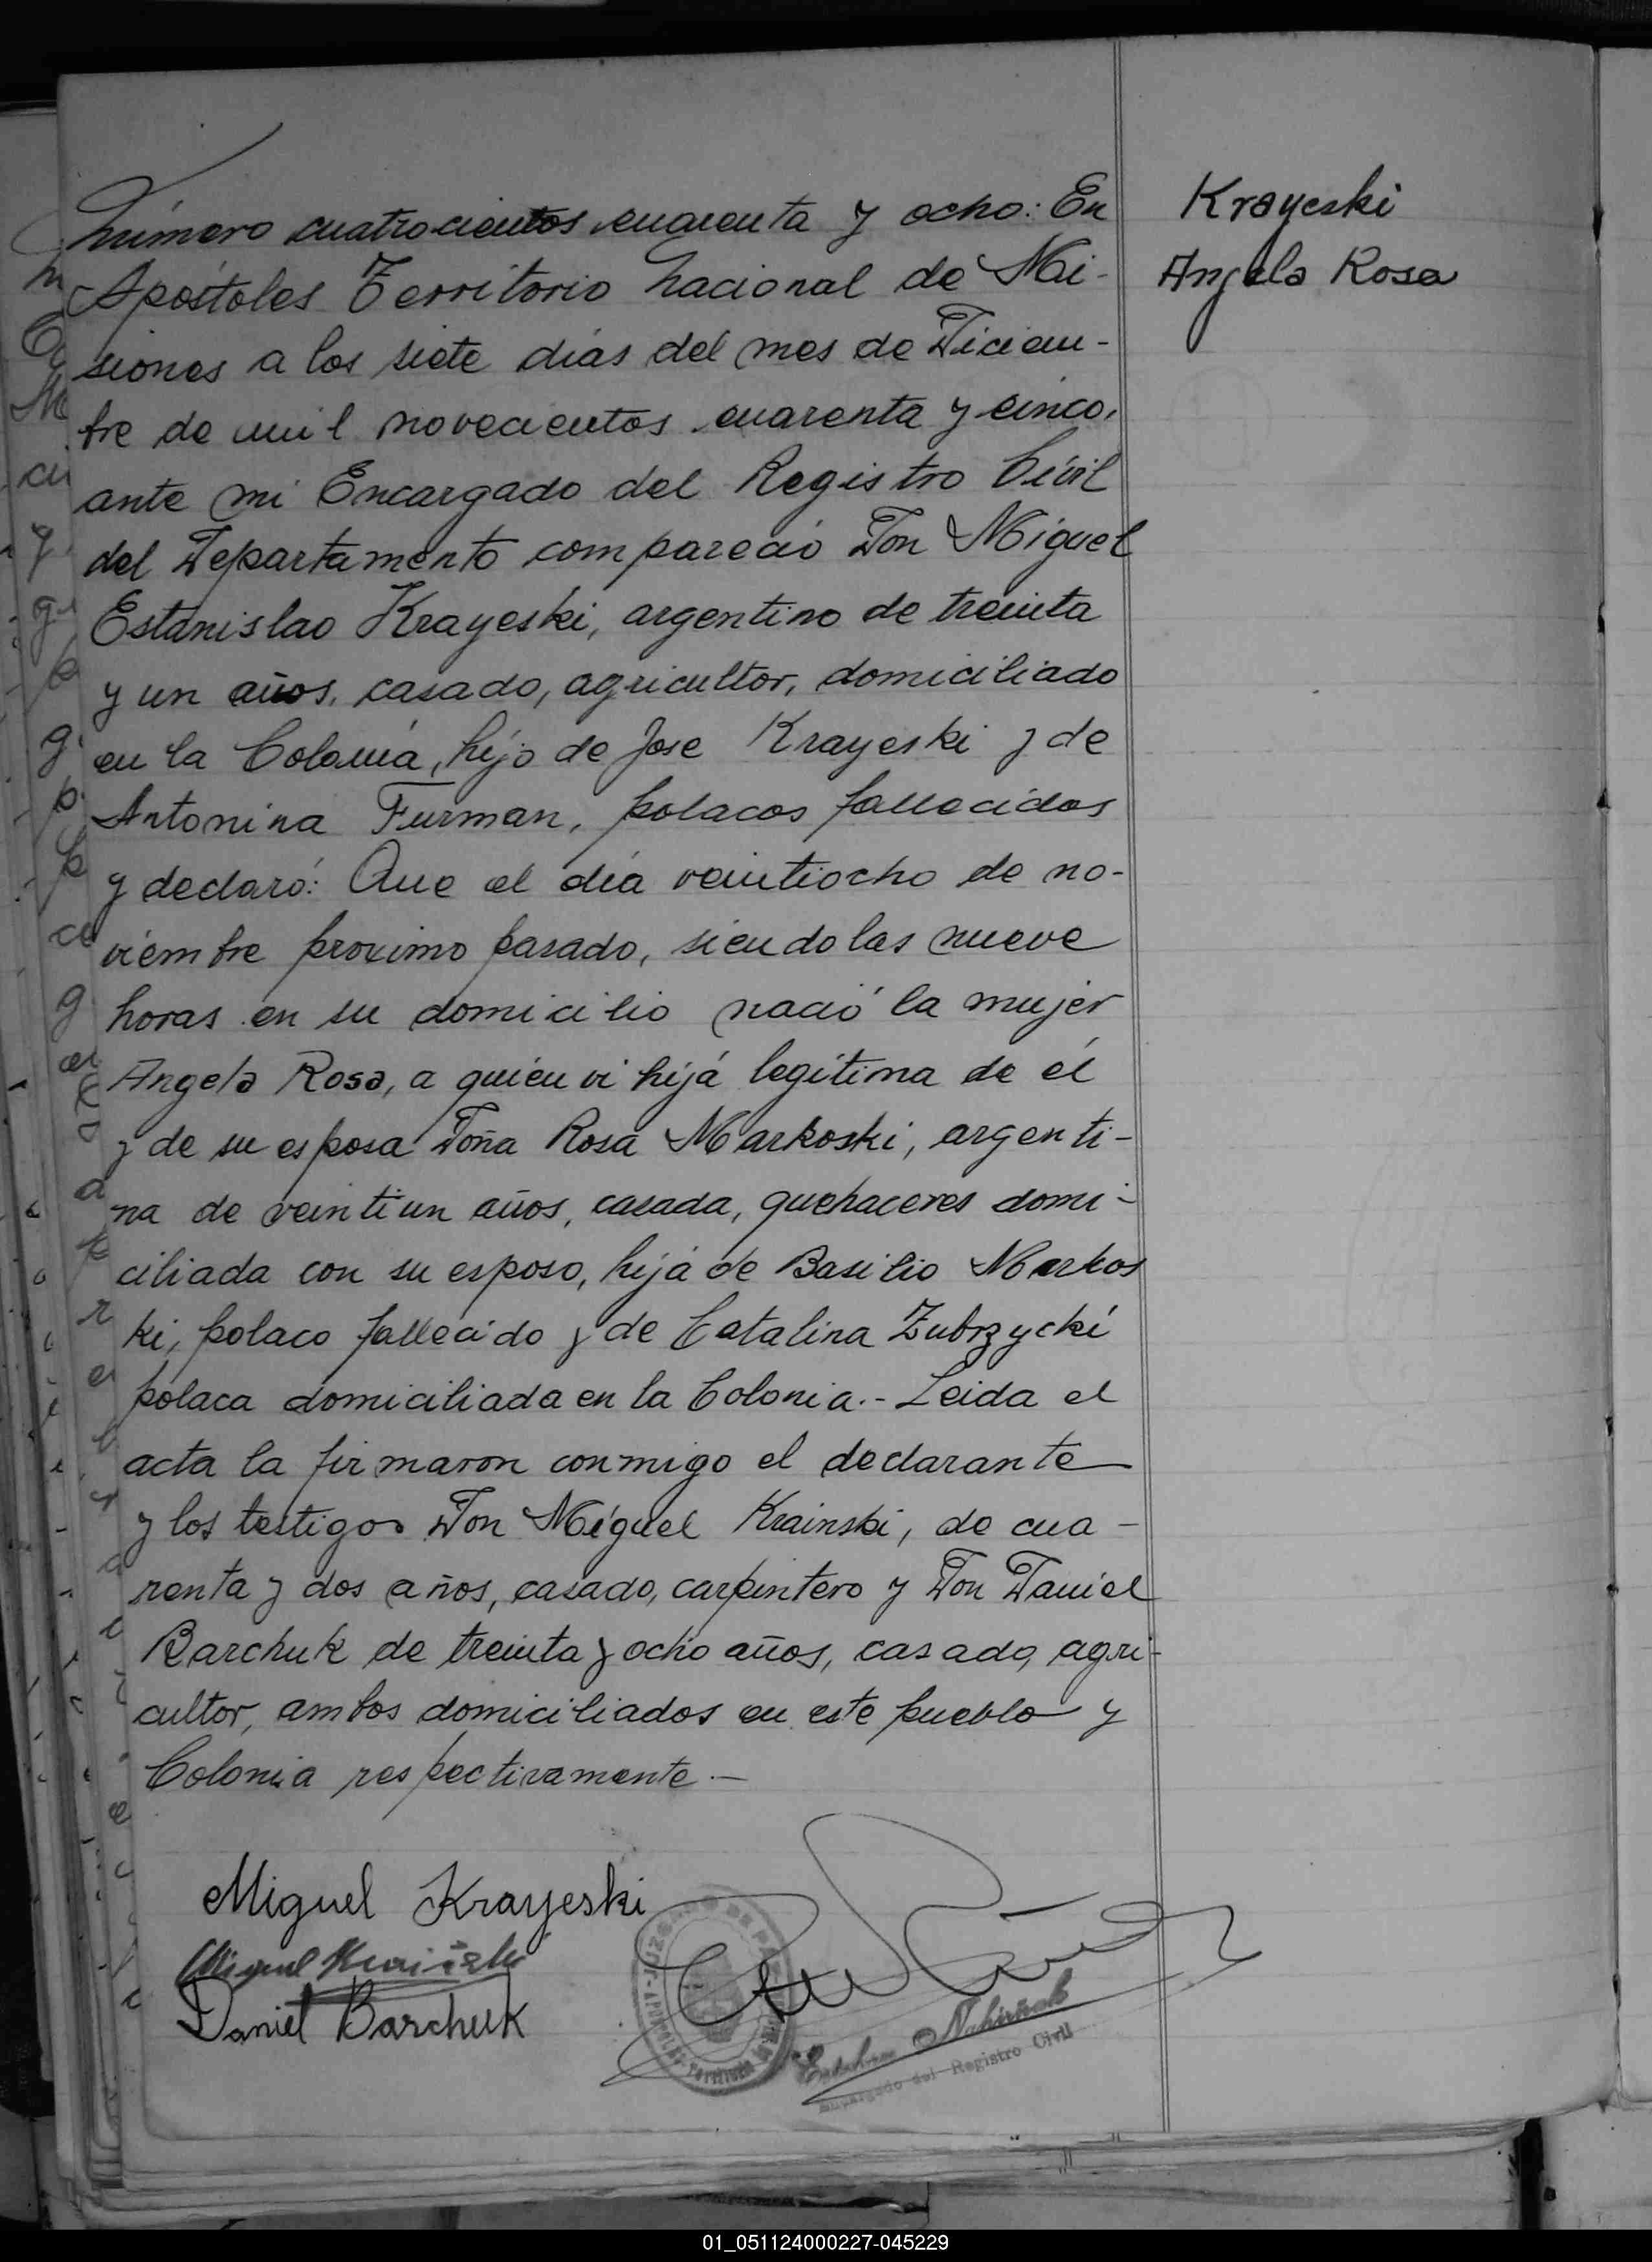 Número cuatrocientos cuarenta y ocho: En
Apóstoles Territorio Nacional de Mi-
siones a los siete días del mes de Diciem-
bre de mil novecientos cuarenta y cinco,
ante mi Encargado del Registro Civil
del Departamento compareció Don Miguel
Estanislao Krayeski, argentino de treinta
y un años, casado, agricultor, domiciliado
en la Colonia, hijo de Jose Krayeski y de
Antonina Furman, polacos fallecidos
y declaró: Que el día veintiocho de no-
viembre proximo pasado, siendo las nueve
horas en su domicilio nació la mujer
Angela Rosa, a quien vi hija legítima de él
y de su esposa Doña Rosa Markoski, argenti-
na de veintiun años, casada, quehaceres domi-
ciliada con su esposo, hija de Basilio Markos
ki, polaco fallecido y de Catalina Zubrzycki
polaca domiciliada en la Colonia.- Leida el
acta la firmaron conmigo el declarante
y los testigos Don Miguel Krainski, de cua-
renta y dos años, casado, carpintero y Don Daniel
Barchuk de treinta y ocho años, casado, agri-
cultor, ambos domiciliados en este pueblo y
Colonia respectivamente.-
Krayeski
Angela Rosa
Miguel Krayeski
Miguel Krainski
Daniel Barchuk
Encargado del Registro Civil
01_051124000227-045229